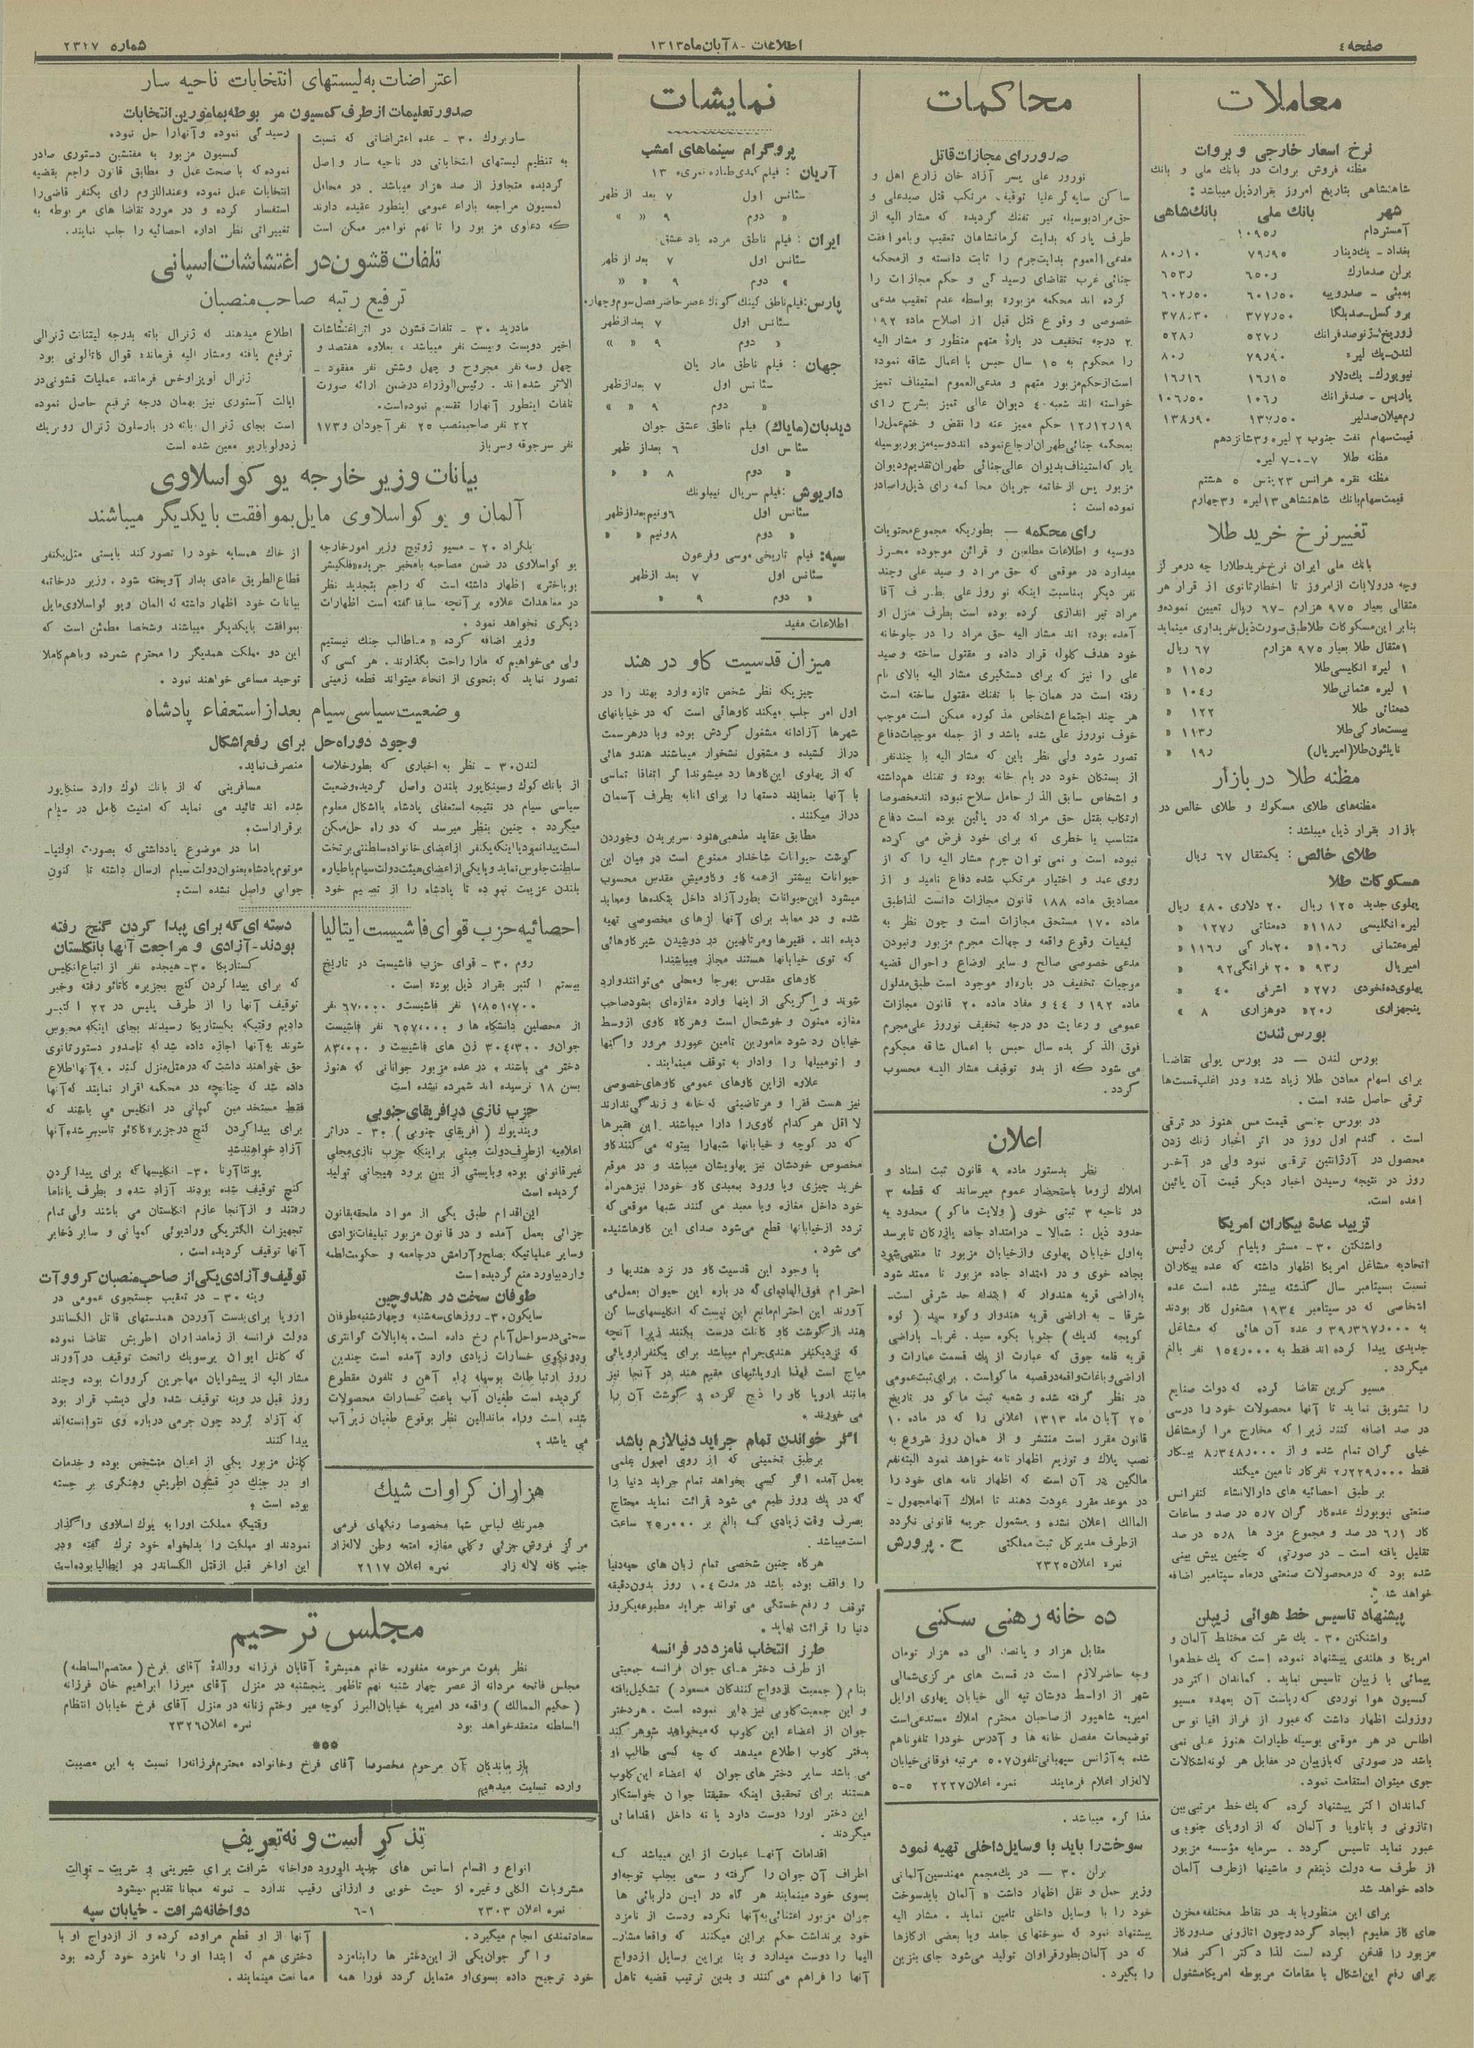 صفحه ٤
اطلاعات - ٨ آبان ماه ١٣١٣
شماره ٢٣١٧
معاملات
نرخ اسعار خارجی و بروات
مظنه فروش بروات در بانك ملی و بانك
شاهنشاهی بتاریخ امروز بقرار ذیل میباشد :
شهر بانك ملی بانك شاهی
آمستردام ١٠٩٥ر
بغداد - یك دینار ٧٩ر٩٥ ٨٠ر١٠
برلن صد مارك ٦٥٠ر ٦٥٣ر
بمبئی - صد روپیه ٦٠١ر٥٠ ٦٠٢ر٥٠
بروكسل - صد بلگا ٣٧٧ر٥٠ ٣٧٨ر٣٠
زوریخ - ژنو صد فرانك ٥٢٧ر ٥٢٨ر
لندن - یك لیره ٧٩ر٩٠ ٨٠ر
نیویورك - یك دلار ١٦ر١٥ ١٦ر١٦
پاریس - صد فرانك ١٠٦ر ١٠٦ر٥٠
رم میلان صد لیر ١٣٧ر٥٠ ١٣٨ر٩٠
قیمت سهام نفت جنوب ٢ لیره و ٣ شانزدهم
مظنه طلا ٧-٠-٧ لیره
مظنه نقره هر انس ٢٣ پنس ٥ هشتم
قیمت سهام بانك شاهنشاهی ١٣ لیره و ٣ چهارم
تغییر نرخ خرید طلا
بانك ملی ایران نرخ خرید طلا را چه در مركز
وچه در ولایات از امروز تا اخطار ثانوی از قرار هر
مثقالی بعیار ٩٧٥ هزارم - ٦٧ ریال تعیین نموده و
بنابر این مسكوكات طلا طبق صورت ذیل خریداری مینماید
١ مثقال طلا بعیار ٩٧٥ هزارم ٦٧ ریال
١ لیره انگلیسی طلا ١١٥ر «
١ لیره عثمانی طلا ١٠٤ر «
ده مناتی طلا ١٢٢ «
بیست ماركی طلا ١١٣ر «
ناپلئون طلا (امپریال) ١٩ر «
مظنه طلا در بازار
مظنه های طلای مسكوك و طلای خالص در
بازار بقرار ذیل میباشد :
طلای خالص : یكمثقال ٦٧ ریال
مسكوكات طلا
پهلوی جدید ١٢٥ ریال ٢٠ دلاری ٤٨٠ ریال
لیره انگلیسی ١١٨ر« ده مناتی ١٢٧ر «
لیره عثمانی ١٠٦ر« ٢٠ ماركی ١١٦ر «
امپریال ٩٣ر « ٢٠ فرانگی ٩٢ «
پهلوی ده نخودی ٢٧ر« اشرفی ٤٠ «
پنجهزاری ٢٠ر« دوهزاری ٨ «
بورس لندن
بورس لندن — در بورس پولی تقاضا
برای اسهام معادن طلا زیاد شده و در اغلب قسمت ها
ترقی حاصل شده است .
در بورس جنسی قیمت مس هنوز در ترقی
است . گندم اول روز در اثر اخبار زنك زدن
محصول در آرژانتین ترقی نمود ولی در آخر
روز در نتیجه رسیدن اخبار دیگر قیمت آن پائین
آمده است.
تزیید عدۀ بیكاران امریكا
واشنگتن ٣٠- مستر ویلیام گرین رئیس
اتحادیه مشاغل امریكا اظهار داشته كه عده بیكاران
نسبت بسپتامبر سال گذشته بیشتر شده است عده
اشخاصی كه در سپتامبر ١٩٣٤ مشغول كار بودند
به ٣٩ر٣٦٧ر٠٠٠ و عده آن هائی كه مشاغل
جدیدی پیدا كرده اند فقط به ١٥٤ر٠٠٠ نفر بالغ
میگردد .
مسیو گرین تقاضا كرده كه دولت صنایع
را تشویق نماید تا آنها محصولات خود را درسی
در صد اضافه كنند زیرا كه مخارج مرا كز مشاغل
خیلی گران تمام شده و از ٨ر٣٤٨ر٠٠٠ بیكار
فقط ٢ر٢٢٩ر٠٠٠ نفر كار تامین میكند
بر طبق احصائیه های دارالانشاء كنفرانس
صنعتی نیویورك عده كار گران ٥ر٧ در صد و ساعات
كار ٦ر١ در صد و مجموع مزد ها ٨ر٥ در صد
تقلیل یافته است - در صورتی كه چنین پیش بینی
شده بود كه در محصولات صنعتی درماه سپتامبر اضافه
خواهد شد .
پیشنهاد تاسیس خط هوائی زپلن
واشنگتن ٣٠ - یك شركت مختلط آلمان و
امریكا و هلندی پیشنهاد نموده است كه یك خط هوا
پیمائی با زپلین تاسیس نماید . كماندان اكنر در
كمسیون هوا نوردی كه ریاست آن بعهده مسیو
روزولت اظهار داشت كه عبور از فراز اقیانوس
اطلس در هر موقعی بوسیله طیارات هنوز عملی نمی
باشد در صورتی كه با زپلین در مقابل هر گونه اشكالات
جوی میتوان استقامت نمود.
كماندان اكنر پیشنهاد كرده كه یك خط مرتبی بین
اتازونی و باتاویا و آلمان كه از اروپای جنوبی
عبور نماید تاسیس گردد . سرمایه مؤسسه مزبور
از طرف سه دولت ذینفع و ماشینها از طرف آلمان
داده خواهد شد
برای این منظور باید در نقاط مختلفه مخزن
های گاز هلیوم ایجاد گردد و چون اتازونی صدور گاز
مزبور را قدغن كرده است لذا دكتر اكنر فعلا
برای رفع این اشكال با مقامات مربوطه امریكا مشغول
محاكمات
صدور رای مجازات قاتل
نوروز علی پسر آزاد خان زارع اهل و
ساكن سایه گر علیا توقیف. مرتكب قتل صید علی و
حق مراد بوسیله تیر تفنك گردیده كه مشار الیه از
طرف پار كه بدایت كرمانشاهان تعقیب و با موافقت
مدعی العموم بدایت جرم را ثابت دانسته و از محكمه
جنائی غرب تقاضای رسید گی و حكم مجازات را
كرده اند محكمه مزبوره بواسطه عدم تعقیب مدعی
خصوصی و وقوع قتل قبل از اصلاح ماده ١٩٢
٢ درجه تخفیف در بارهٔ متهم منظور و مشار الیه
را محكوم به ١٥ سال حبس با اعمال شاقه نموده
است از حكم مزبور متهم و مدعی العموم استیناف تمیز
خواسته اند شعبه ٤ دیوان عالی تمیز بشرح رای
١٢ر١٢ر١٩ حكم ممیز عنه را نقض و ختم عمل را
بمحكمه جنائی طهران ارجاع نموده اند دوسیه مزبور بوسیله
پار كه استیناف بدیوان عالی جنائی طهران تقدیم و دیوان
مزبور پس از خاتمه جریان محا كمه رای ذیل را صادر
نموده است :
رای محكمه — بطوریكه مجموع محتویات
دوسیه و اطلاعات مطلعین و قرائن موجوده محرز
میدارد در موقعی كه حق مراد و صید علی وچند
نفر دیگر بمناسبت اینكه نو روز علی بطرف آقا
مراد تیر اندازی كرده بوده است بطرف منزل او
آمده بوده اند مشار الیه حق مراد را در جلوخانه
خود هدف گلوله قرار داده و مقتول ساخته و صید
علی را نیز كه برای دستگیری مشار الیه بالای بام
رفته است در همان جا با تفنك مقتول ساخته است
هر چند اجتماع اشخاص مذ كوره ممكن است موجب
خوف نوروز علی شده باشد و از جمله موجبات دفاع
تصور شود ولی نظر باین كه مشار الیه با چند نفر
از بستگان خود در بام خانه بوده و تفنك هم داشته
و اشخاص سابق الذ كر حامل سلاح نبوده اند مخصوصا
ارتكاب بقتل حق مراد كه در پائین بوده است دفاع
متناسب با خطری كه برای خود فرض می كرده
نبوده است و نمی توان جرم مشار الیه را كه از
روی عمد و اختیار مرتكب شده دفاع نامید و از
مصادیق ماده ١٨٨ قانون مجازات دانست لذا طبق
ماده ١٧٠ مستحق مجازات است و چون نظر به
كیفیات وقوع واقعه و جهالت مجرم مزبور و نبودن
مدعی خصوصی صالح و سایر اوضاع و احوال قضیه
موجبات تخفیف در باره او موجود است طبق مدلول
ماده ١٩٢ و ٤٤ و مفاد ماده ٢٠ قانون مجازات
عمومی و رعایت دو درجه تخفیف نوروز علی مجرم
فوق الذ كر بده سال حبس با اعمال شاقه محكوم
می شود كه از بدو توقیف مشار الیه محسوب
گردد .
اعلان
نظر بدستور ماده ٩ قانون ثبت اسناد و
املاك لزوما باستحضار عموم میرساند كه قطعه ٣
در ناحیه ٣ ثبتی خوی ( ولایت ماكو ) محدود به
حدود ذیل : شمالا - در امتداد جاده بازرگان تا برسد
به اول خیابان پهلوی و از خیابان مزبور تا منتهی شود
بجاده خوی و در امتداد جاده مزبور تا ممتد شود
به اراضی قریه هندوار كه ابتداء حد شرقی است-
شرقا - به اراضی قریه هندوار و كوه سپد ( كوه
كوپچه گدیك ) جنوبا بكوه سپد . غربا- باراضی
قریه قلعه جوق كه عبارت از یك قسمت عمارات و
اراضی و باغات واقعه در قصبه ما كو است . برای ثبت عمومی
در نظر گرفته شده و شعبه ثبت ما كو در تاریخ
٢٥ آبان ماه ١٣١٣ اعلانی را كه در ماده ١٠
قانون مقرر است منتشر و از همان روز شروع به
نصب پلاك و توزیع اظهار نامه خواهد نمود البته نفع
مالكین در آن است كه اظهار نامه های خود را
در موعد مقرر عودت دهند تا املاك آنها مجهول -
المالك اعلان نشده و مشمول جریمه قانونی نگردد
از طرف مدیر كل ثبت مملكتی ح . پرورش
نمره اعلان ٢٣٢٥
ده خانه رهنی سكنی
مقابل هزار و پانصد الی ده هزار تومان
وجه حاضر لازم است در قسمت های مركزی شمالی
شهر از اواسط دوشان تپه الی خیابان پهلوی اوایل
امیریه شاهپور از صاحبان محترم املاك مستدعی است
توضیحات مفصل خانه ها و آدرس خود را تلفونا هم
شده به آژانس سیهبانی تلفون ٥٠٧ مرتبه فوقانی خیابان
لاله زار اعلام فرمایند نمره اعلان ٢٢٢٧ ٥-٥
مذا كره میباشد .
سوخت را باید با وسایل داخلی تهیه نمود
برلن ٣٠ — در یك مجمع مهندسین آلمانی
وزیر حمل و نقل اظهار داشت « آلمان باید سوخت
خود را با وسایل داخلی تامین نماید . مشار الیه
پیشنهاد نمود كه سوختهای جامد و یا بعضی از گازها
كه در آلمان بطور فراوان تولید می شود جای بنزین
را بگیرد .
نمایشات
پروگرام سینماهای امشب
آریان : فیلم كمدی ١٣
سئانس اول ٧ بعد از ظهر
« دوم ٩ « «
ایران : فیلم ناطق مرده باد عشق
سئانس اول ٧ بعد از ظهر
« دوم ٩ « «
پارس : فیلم ناطق كینك كونك عصر حاضر فصل سوم و چهارم
سئانس اول ٧ بعد از ظهر
« دوم ٩ « «
جهان : فیلم ناطق مار یان
سئانس اول ٧ بعد از ظهر
« دوم ٩ « «
دیدبان (مایاك) فیلم ناطق عشق جوان
سئانس اول ٦ بعد از ظهر
« دوم ٨ « «
داریوش : فیلم سریال نیبلونك
سئانس اول ٦ و نیم بعد از ظهر
« دوم ٨ و نیم « «
سپه : فیلم تاریخی موسی و فرعون
سئانس اول ٧ بعد از ظهر
« دوم ٩ «
اطلاعات مفید
میزان قدسیت گاو در هند
چیزیكه نظر شخص تازه وارد بهند را در
اول امر جلب میكند گاوهائی است كه در خیابانهای
شهرها آزادانه مشغول گردش بوده و یا در هر سمت
دراز كشیده و مشغول نشخوار میباشند هندو هائی
كه از پهلوی این گاوها رد میشوند اگر اتفاقا تماسی
با آنها بنمایند دستها را برای انابه بطرف آسمان
دراز میكنند .
مطابق عقاید مذهبی هنود سر بریدن و خوردن
گوشت حیوانات شاخدار ممنوع است در میان این
حیوانات بیشتر از همه گاو و گاومیش مقدس محسوب
میشود این حیوانات بطور آزاد داخل بتكده ها و معابد
شده و در معابد برای آنها از های مخصوصی تهیه
دیده اند . فقیرها و مرتاضین در دوشیدن شیر گاوهائی
كه توی خیابانها هستند مجاز میباشند!
گاوهای مقدس بهرجا و محلی می توانند وارد
شوند و اگر یكی از اینها وارد مغازه ای بشود صاحب
مغازه ممنون و خوشحال است و هر گاه گاوی از وسط
خیابان رد شود مامورین تامین عبور و مرور واگنها
و اتومبیلها را وادار به توقف مینمایند .
علاوه از این گاوهای عمومی گاوهای خصوصی
نیز هست فقرا و مرتاضینی كه خانه و زندگی ندارند
لا اقل هر كدام گاوی را دارا میباشند این فقیرها
كه در كوچه و خیابانها شبها را بیتوته می كنند گاو
مخصوص خودشان نیز پهلویشان میباشد و در موقع
خرید چیزی و یا ورود بمعبدی گاو خود را نیز همراه
خود داخل مغازه و یا معبد می كنند شبها موقعی كه
تردد از خیابانها قطع می شود صدای این گاوها شنیده
می شود .
با وجود این قدسیت گاو در نزد هندیها و
احترام فوق العاده ای كه در باره این حیوان بعمل می
آورند این احترام مانع این نیست كه انگلیسهای ساكن
هند از گوشت گاو كتلت درست بكنند زیرا آنچه
كه نزد یكنفر هندی حرام میباشد برای یكنفر اروپائی
مباح است لهذا اروپائیهای مقیم هند در آنجا نیز
مانند اروپا گاو را ذبح كرده و گوشت آن را
می خورند .
اگر خواندن تمام جراید دنیا لازم باشد
بر طبق تخمینی كه از روی اصول علمی
بعمل آمده اگر كسی بخواهد تمام جراید دنیا را
كه در یك روز طبع می شود قرائت نماید محتاج
بصرف وقت زیادی كه بالغ بر ٢٥ر٠٠٠ ساعت
است میباشد .
هر گاه چنین شخصی تمام زبان های حیه دنیا
را واقف بوده باشد در مدت ١٠٤ روز بدون دقیقه
توقف و رفع خستگی می تواند جراید مطبوعه یكروز
دنیا را قرائت نماید.
طرز انتخاب نامزد در فرانسه
از طرف دختر های جوان فرانسه جمعیتی
بنام ( جمعیت ازدواج كنندگان مسعود ) تشكیل یافته
و این جمعیت كلوبی نیز دایر نموده است . هر دختر
جوان از اعضاء این كلوب كه میخواهد شوهر كند
بدفتر كلوب اطلاع میدهد كه چه كسی طالب او
می باشد سایر دختر های جوان كه اعضاء این كلوب
هستند برای تحقیق اینكه حقیقتا جوان خواستگار
این دختر او را دوست دارد یا نه داخل اقداماتی
میگردند .
اقدامات آنها عبارت از این میباشد كه
اطراف آن جوان را گرفته و سعی بجلب توجه او
بسوی خود مینمایند هر گاه در این دلربائی ها
جوان مزبور اعتنائی به آنها نكرده و دست از نامزد
خود برنداشت حكم بر این میكنند كه واقعا مشار-
الیها را دوست میدارد و بنا براین وسایل ازدواج
آنها را فراهم می كنند و بدین ترتیب قضیه تاهل
سعادتمندی انجام میگیرد .
و اگر جوان یكی از این دختر ها را بنامزد
خود ترجیح داده بسوی او متمایل گردد فورا همه
آنها از او قطع مراوده كرده و از ازدواج او با
دختری هم كه ابتدا او را نامزد خود كرده بود
مما نعت مینمایند .
اعتراضات به لیستهای انتخابات ناحیه سار
صدور تعلیمات از طرف كمسیون مر بوطه بمامورین انتخابات
ساربروك ٣٠ - عده اعتراضاتی كه نسبت
به تنظیم لیستهای انتخاباتی در ناحیه سار واصل
گردیده متجاوز از صد هزار میباشد . در محافل
كمسیون مراجعه باراء عمومی اینطور عقیده دارند
كه دعاوی مز بور را تا نهم نوامبر ممكن است
رسیدگی نموده و آنها را حل نموده
كمسیون مزبور به مفتشین دستوری صادر
نموده كه با صحت عمل و مطابق قانون راجع بقضیه
انتخابات عمل نموده و عنداللزوم رای یكنفر قاضی را
استفسار كرده و در مورد تقاضا های مربوطه به
تغییراتی نظر اداره احصائیه را جلب نمایند.
تلفات قشون در اغتشاشات اسپانی
ترفیع رتبه صاحب منصبان
مادرید ٣٠ - تلفات قشون در اثر اغتشاشات
اخیر دویست و بیست نفر میباشد ، بعلاوه هفتصد و
چهل و سه نفر مجروح و چهل و شش نفر مفقود -
الاثر شده اند . رئیس الوزراء در ضمن ارائه صورت
تلفات اینطور آنها را تقسیم نموده است.
٢٢ نفر صاحبمنصب ٢٥ نفر آجودان و ١٧٣
نفر سرجوقه و سرباز
اطلاع میدهند كه ژنرال باته بدرجه لیتنانت ژنرالی
ترفیع یافته و مشار الیه فرمانده قوای كاتالونی بود
ژنرال لوپز اوخس فرمانده عملیات قشونی در
ایالت آستوری نیز بهمان درجه ترفیع حاصل نموده
است بجای ژنرال باته در بارسلون ژنرال رودریك
زدولوباریو معین شده است
بیانات وزیر خارجه یو گو اسلاوی
آلمان و یو گو اسلاوی مایل بموافقت با یكدیگر میباشند
بلگراد ٢٠ - مسیو ژوتیچ وزیر امور خارجه
یو گواسلاوی در ضمن مصاحبه با مخبر جریده «فلكیشر
بوباختر» اظهار داشته است كه راجع بتجدید نظر
در معاهدات علاوه بر آنچه سابقا گفته است اظهارات
دیگری نخواهد نمود .
وزیر اضافه كرده « ما طالب جنك نیستیم
ولی می خواهیم كه ما را راحت بگذارند . هر كسی كه
تصور نماید كه بنحوی از انحاء میتواند قطعه زمینی
از خاك همسایه خود را تصور كند بایستی مثل یكنفر
قطاع الطریق عادی بدار آویخته شود . وزیر در خاتمه
بیانات خود اظهار داشته كه المان و یو گو اسلاوی مایل
بموافقت با یكدیگر میباشند و شخصا مطمئن است كه
این دو مملكت همدیگر را محترم شمرده و باهم كاملا
توحید مساعی خواهند نمود .
وضعیت سیاسی سیام بعد از استعفاء پادشاه
وجود دو راه حل برای رفع اشكال
لندن ٣٠ - نظر به اخباری كه بطور خلاصه
از بانك كوك و سینگاپور بلندن واصل گردیده وضعیت
سیاسی سیام در نتیجه استعفای پادشاه با اشكال معلوم
میگردد . چنین بنظر میرسد كه دو راه حل ممكن
است پیدا نمود یا اینكه یكنفر از اعضای خانواده سلطنتی بر تخت
سلطنت جلوس نماید و یا یكی از اعضای هیئت دولت سیام با طیاره
بلندن عزیمت نموده تا پادشاه را از تصمیم خود
منصرف نماید.
مسافرینی كه از بانك كوك وارد سنگاپور
شده اند تائید می نماید كه امنیت كامل در سیام
برقرار است.
اما در موضوع یادداشتی كه بصورت اولتیما-
توم پادشاه بعنوان دولت سیام ارسال داشته تا كنون
جوابی واصل نشده است .
احصائیه حزب قوای فاشیست ایتالیا
روم ٣٠ - قوای حزب فاشیست در تاریخ
بیستم ا كتبر بقرار ذیل بوده است .
١ر٨٥١ر٧٠٠ نفر فاشیست و ٦٧ر٠٠٠ نفر
از محصلین دانشگاه ها و ٦٥٧ر٠٠٠ نفر فاشیست
جوان و ٣٠٤ر٣٠٠ زن های فاشیست و ٨٣ر٠٠٠
دختر می باشند . در عده مزبور جوانانی كه هنوز
بسن ١٨ نرسیده اند شمرده نشده است
حزب نازی در افریقای جنوبی
ویندبوك ( افریقای جنوبی ) ٣٠ - در اثر
اعلامیه از طرف دولت مبنی بر اینكه حزب نازی محلی
غیر قانونی بوده و بایستی از بین برود هیجانی تولید
گردیده است
این اقدام طبق یكی از مواد ملحقه بقانون
جزائی بعمل آمده و در قانون مزبور تبلیغات نژادی
و سایر عملیاتیكه بصلح و آرامش در جامعه و حكومت لطمه
وارد بیاورد منع گردیده است
طوفان سخت در هندوچین
سایگون ٣٠ - روزهای سه شنبه و چهارشنبه طوفان
سختی در سواحل آنام رخ داده است . به ایالات كوانتری
و دونكوی خسارات زیادی وارد آمده است چندین
روز ارتباطات بوسیله راه آهن و تلفون مقطوع
گردیده است طغیان آب باعث خسارات محصولات
شده است و راه ماندالین نظر بوقوع طغیان زیر آب
می باشد ،
هزاران كراوات شیك
همرنك لباس شما مخصوصا رنگهای فرمی
مركز فروش جزئی و كلی مغازه امتعه وطن لاله زار
جنب كافه لاله زار نمره اعلان ٢١١٧
دسته ای كه برای پیدا كردن گنج رفته
بودند - آزادی و مراجعت آنها بانگلستان
كستاریكا ٣٠ - هیجده نفر از اتباع انگلیس
كه برای پیدا كردن گنج بجزیره كاكائو رفته و خبر
توقیف آنها را از طرف پلیس در ٢٢ اكتبر
دادیم وقتیكه بكستاریكا رسیدند بجای اینكه محبوس
شوند به آنها اجازه داده شد كه تا صدور دستور ثانوی
حق نخواهند داشت كه در هتل منزل كنند . به آنها اطلاع
داده شد كه چنانچه در محكمه اقرار نمایند كه آنها
فقط مستخدمین كمپانی در انگلیس می باشند كه
برای پیدا كردن گنج در جزیره كاكائو تاسیس شده آنها
آزاد خواهند شد
پونتا آرنا ٣٠ - انگلیسها كه برای پیدا كردن
گنج توقیف شده بودند آزاد شده و بطرف پاناما
رفتند و از آنجا عازم انگلستان می باشند ولی تمام
تجهیزات الكتریكی و رادیوئی كمپانی و سایر ذخایر
آنها توقیف گردیده است .
توقیف و آزادی یكی از صاحب منصبان كرووآت
وینه ٣٠ - در تعقیب جستجوی عمومی در
اروپا برای بدست آوردن همدستهای قاتل الكساندر
دولت فرانسه از زمامداران اطریش تقاضا نموده
كه كلنل ایوان پرسویك را تحت توقیف در آورند
مشار الیه از پیشوایان مهاجرین كرووات بوده و چند
روز قبل در وینه توقیف شده ولی دیشب قرار بود
كه آزاد گردد چون جرمی درباره وی نتوانسته اند
پیدا كنند
كلنل مزبور یكی از اعیان متشخص بوده و خدمات
او در جنك در قشون اطریش و هنگری بر جسته
بوده است ،
وقتیكه مملكت اورا به یوك اسلاوی واگذار
نمودند او مملكت را بدلخواه خود ترك گفته و در
این اواخر قبل از قتل الكساندر در ایطالیا بوده است
مجلس ترحیم
نظر بفوت مرحومه مغفوره خانم همشیرهٔ آقایان فرزانه و والدهٔ آقای فرخ ( معتصم السلطنه )
مجلس فاتحه مردانه از عصر چهار شنبه نهم تا ظهر پنجشنبه در منزل آقای میرزا ابراهیم خان فرزانه
( حكیم الممالك ) واقعه در امیریه خیابان البرز كوچه میر و ختم زنانه در منزل آقای فرخ خیابان انتظام
السلطنه منعقد خواهد بود نمره اعلان ٢٣٢٦
***
باز ماندگان آن مرحوم مخصوصا آقای فرخ و خانواده محترم فرزانه را نسبت به این مصیبت
وارده تسلیت میدهیم
تذكر است و نه تعریف
انواع و اقسام اسانس های جدید الورود دواخانه شرافت برای شیرینی و شربت - توالت
مشروبات الكلی و غیره از حیث خوبی و ارزانی رقیب ندارد - نمونه مجانا تقدیم میشود
نمره اعلان ٢٣٠٣ ٦-١ دواخانه شرافت - خیابان سپه